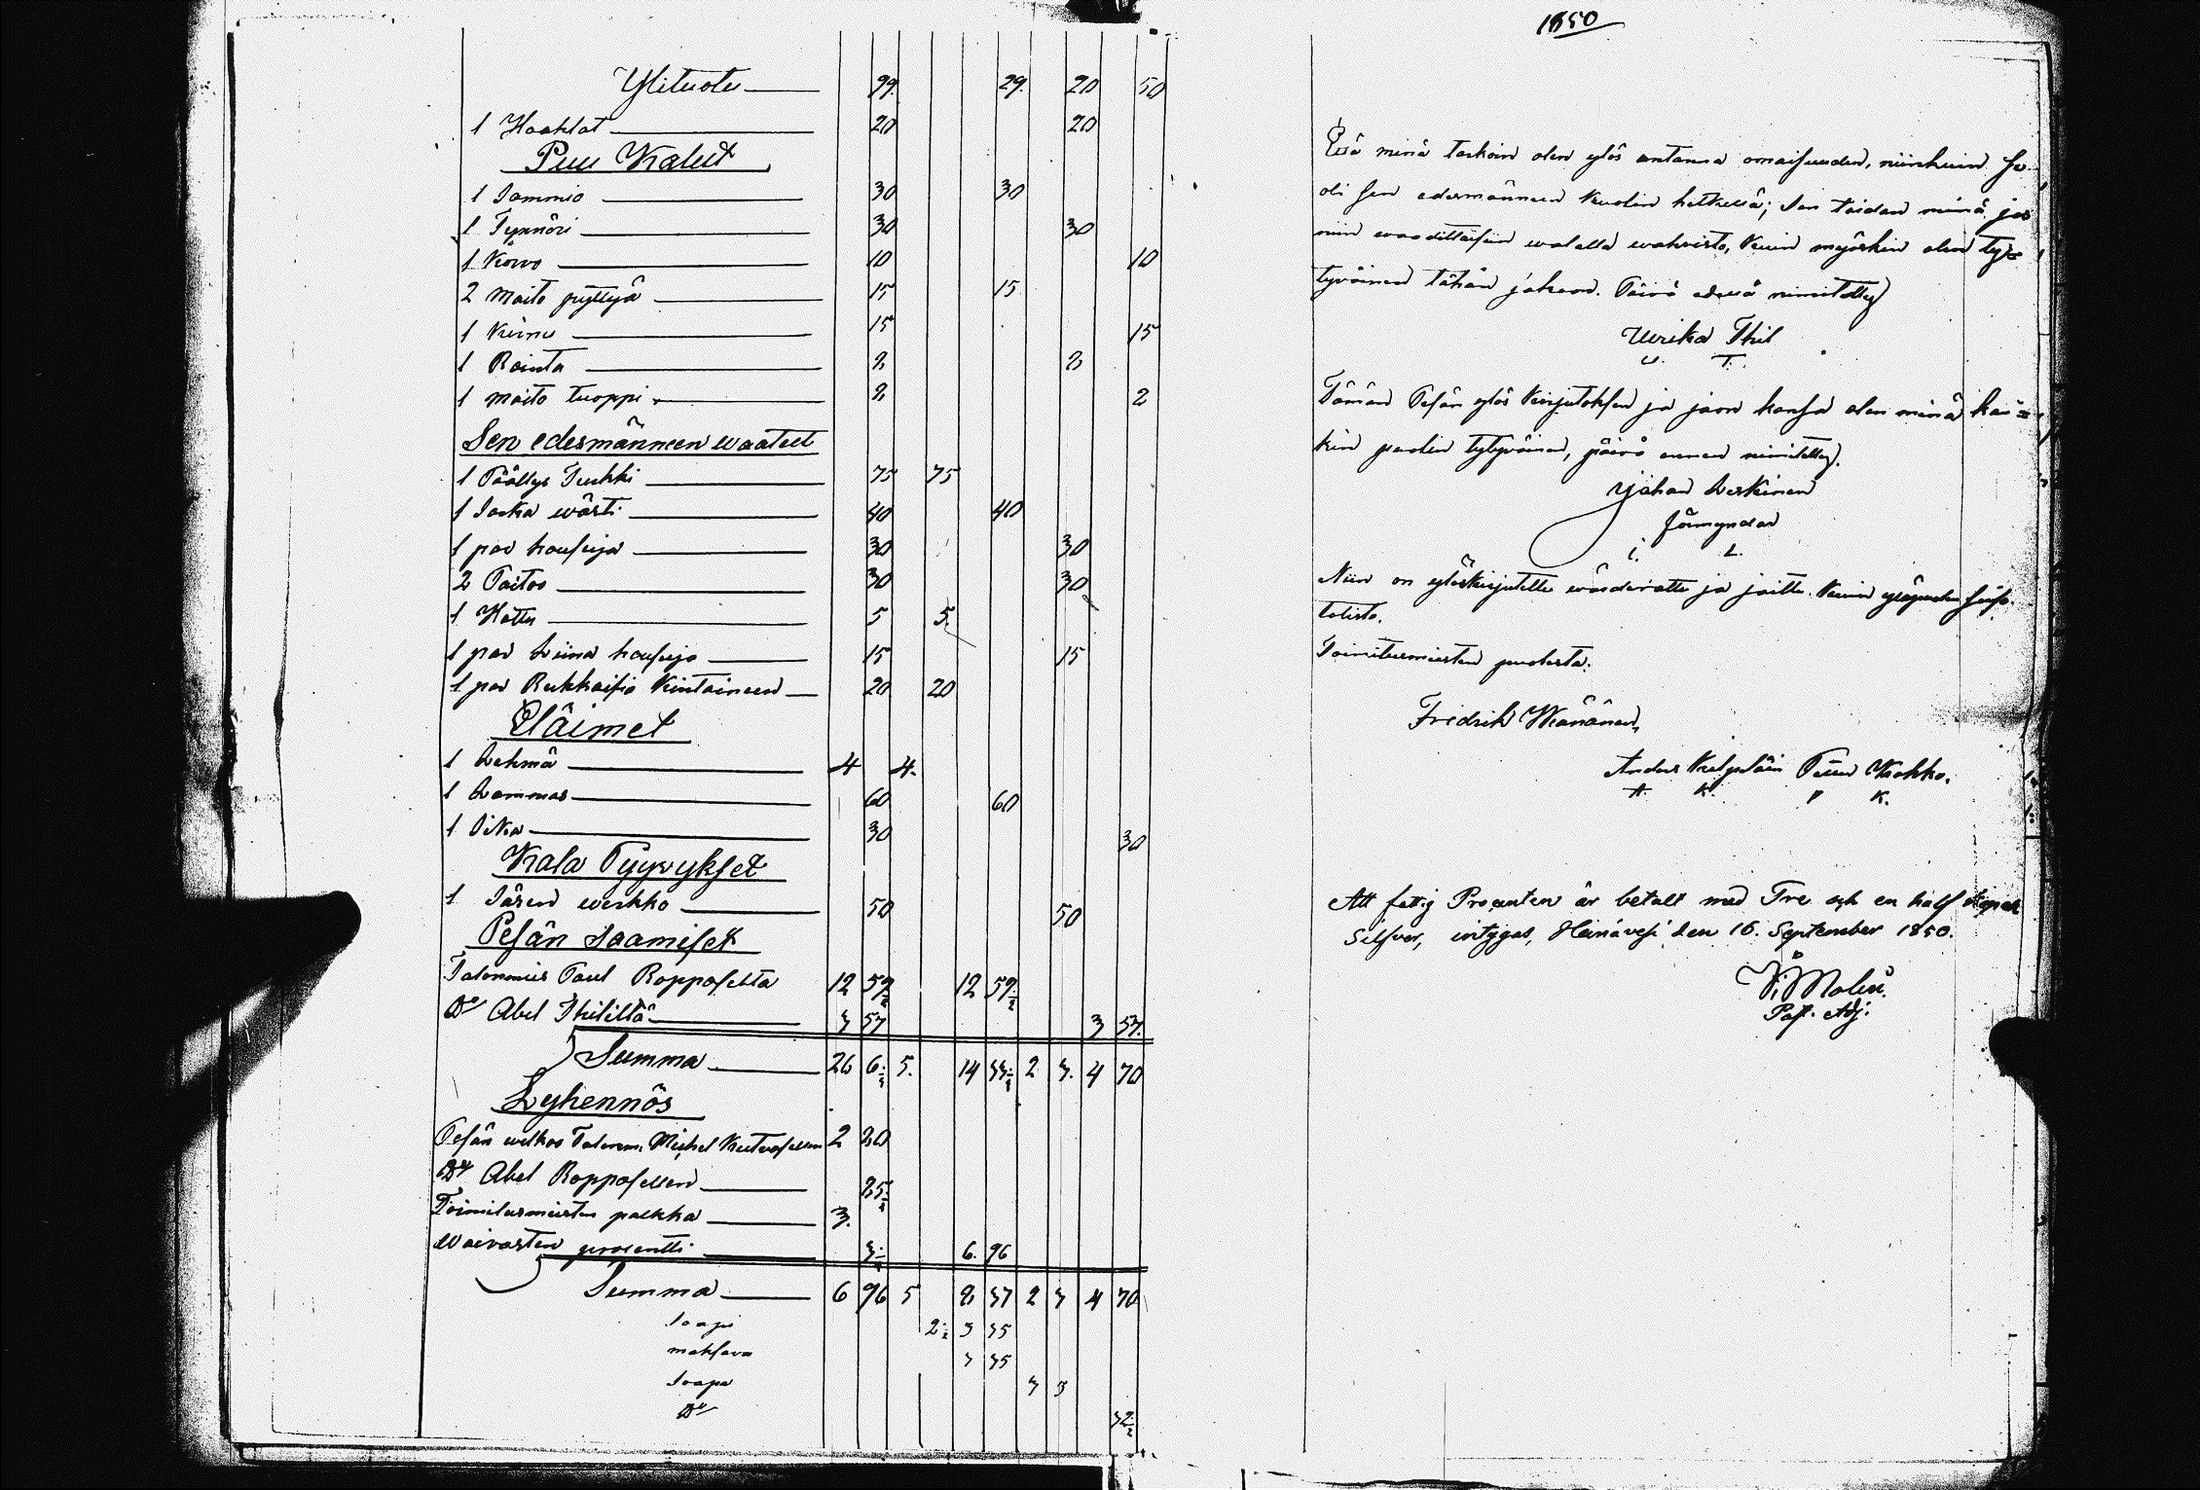 1850
Ylituotu 99. 29. 20 50
1 Haahlat 20 20
Puu Kalut
1 Sammio 30 30
1 Tynnöri 30 30
1 Korvo 10 10
2 Maito pyttyä 15 15
1 Kirnu 15 15
1 Rainta 2 2
1 Maito tuoppi 2 2
Sen edesmänneen waatteet
1 Päällys Turkki 75 75
1 Sarka wästi 40 40
1 par housuja 30 30
2 Paitaa 30 30
1 Hattu 5 5.
1 par Liina housuja 15 15
1 par Rukkaisia Kintaineen 20 20
Eläimet
1 Lehmä 4 4.
1 Lammas 60 60
1 Sika 30 30
Kala Pyyvykset
1 Sären werkko 50 50
Pesän Saamiset
Talonmies Paul Ropposelta 12 59½ 12 59½
D° Abel Thililtä 3 57 3 57.
Summa 26 6 5. 14 2 3. 4 70
Lyhennös
Pesän welkaa Talonm. Michel 2 20
D° AbelRopposellen 25
Toimitusmiesten palkka 3.
Waivasten prosentti 6. 96
Summa 6 96 5 2 37 2 3 4 70
Saapi 2½ 3 35
maksava 3 35
Saapa 3 3
D° 32½
Että minä tarkoin olen ylös antanna omaisuuden, niinkuin se
oli sen edesmänneen kuolin hetkellä; sen taidan minä, jos
niin waadittaisiin walalla wahvistaa, kuin myöskin olen tyy-
tyväinen tähän jakoon. Päivä edellä nimitetty
Ulrika Thil
U. T.
Tämän Pesän ylös kirjutoksen ja jaon kansa olen minä kai-
kin puolin tytyväinen, päivä ennen nimitetty.
Johan Leskinen
förmyndar
J. L.
Niin on ylöskirjutettu wärderattu ja jaittu. Kuin
todista.
Toimitusmiesten puolesta:
Fredrik Wänänen,
Anders Kulpuläin Petter Kokko.
A. K. P K.
Att fattig Procenten är betalt med Tre och en half kopek
Silfver, intygas, Heinävesi den 16. September 1850.
Molin.
Past. Adj.